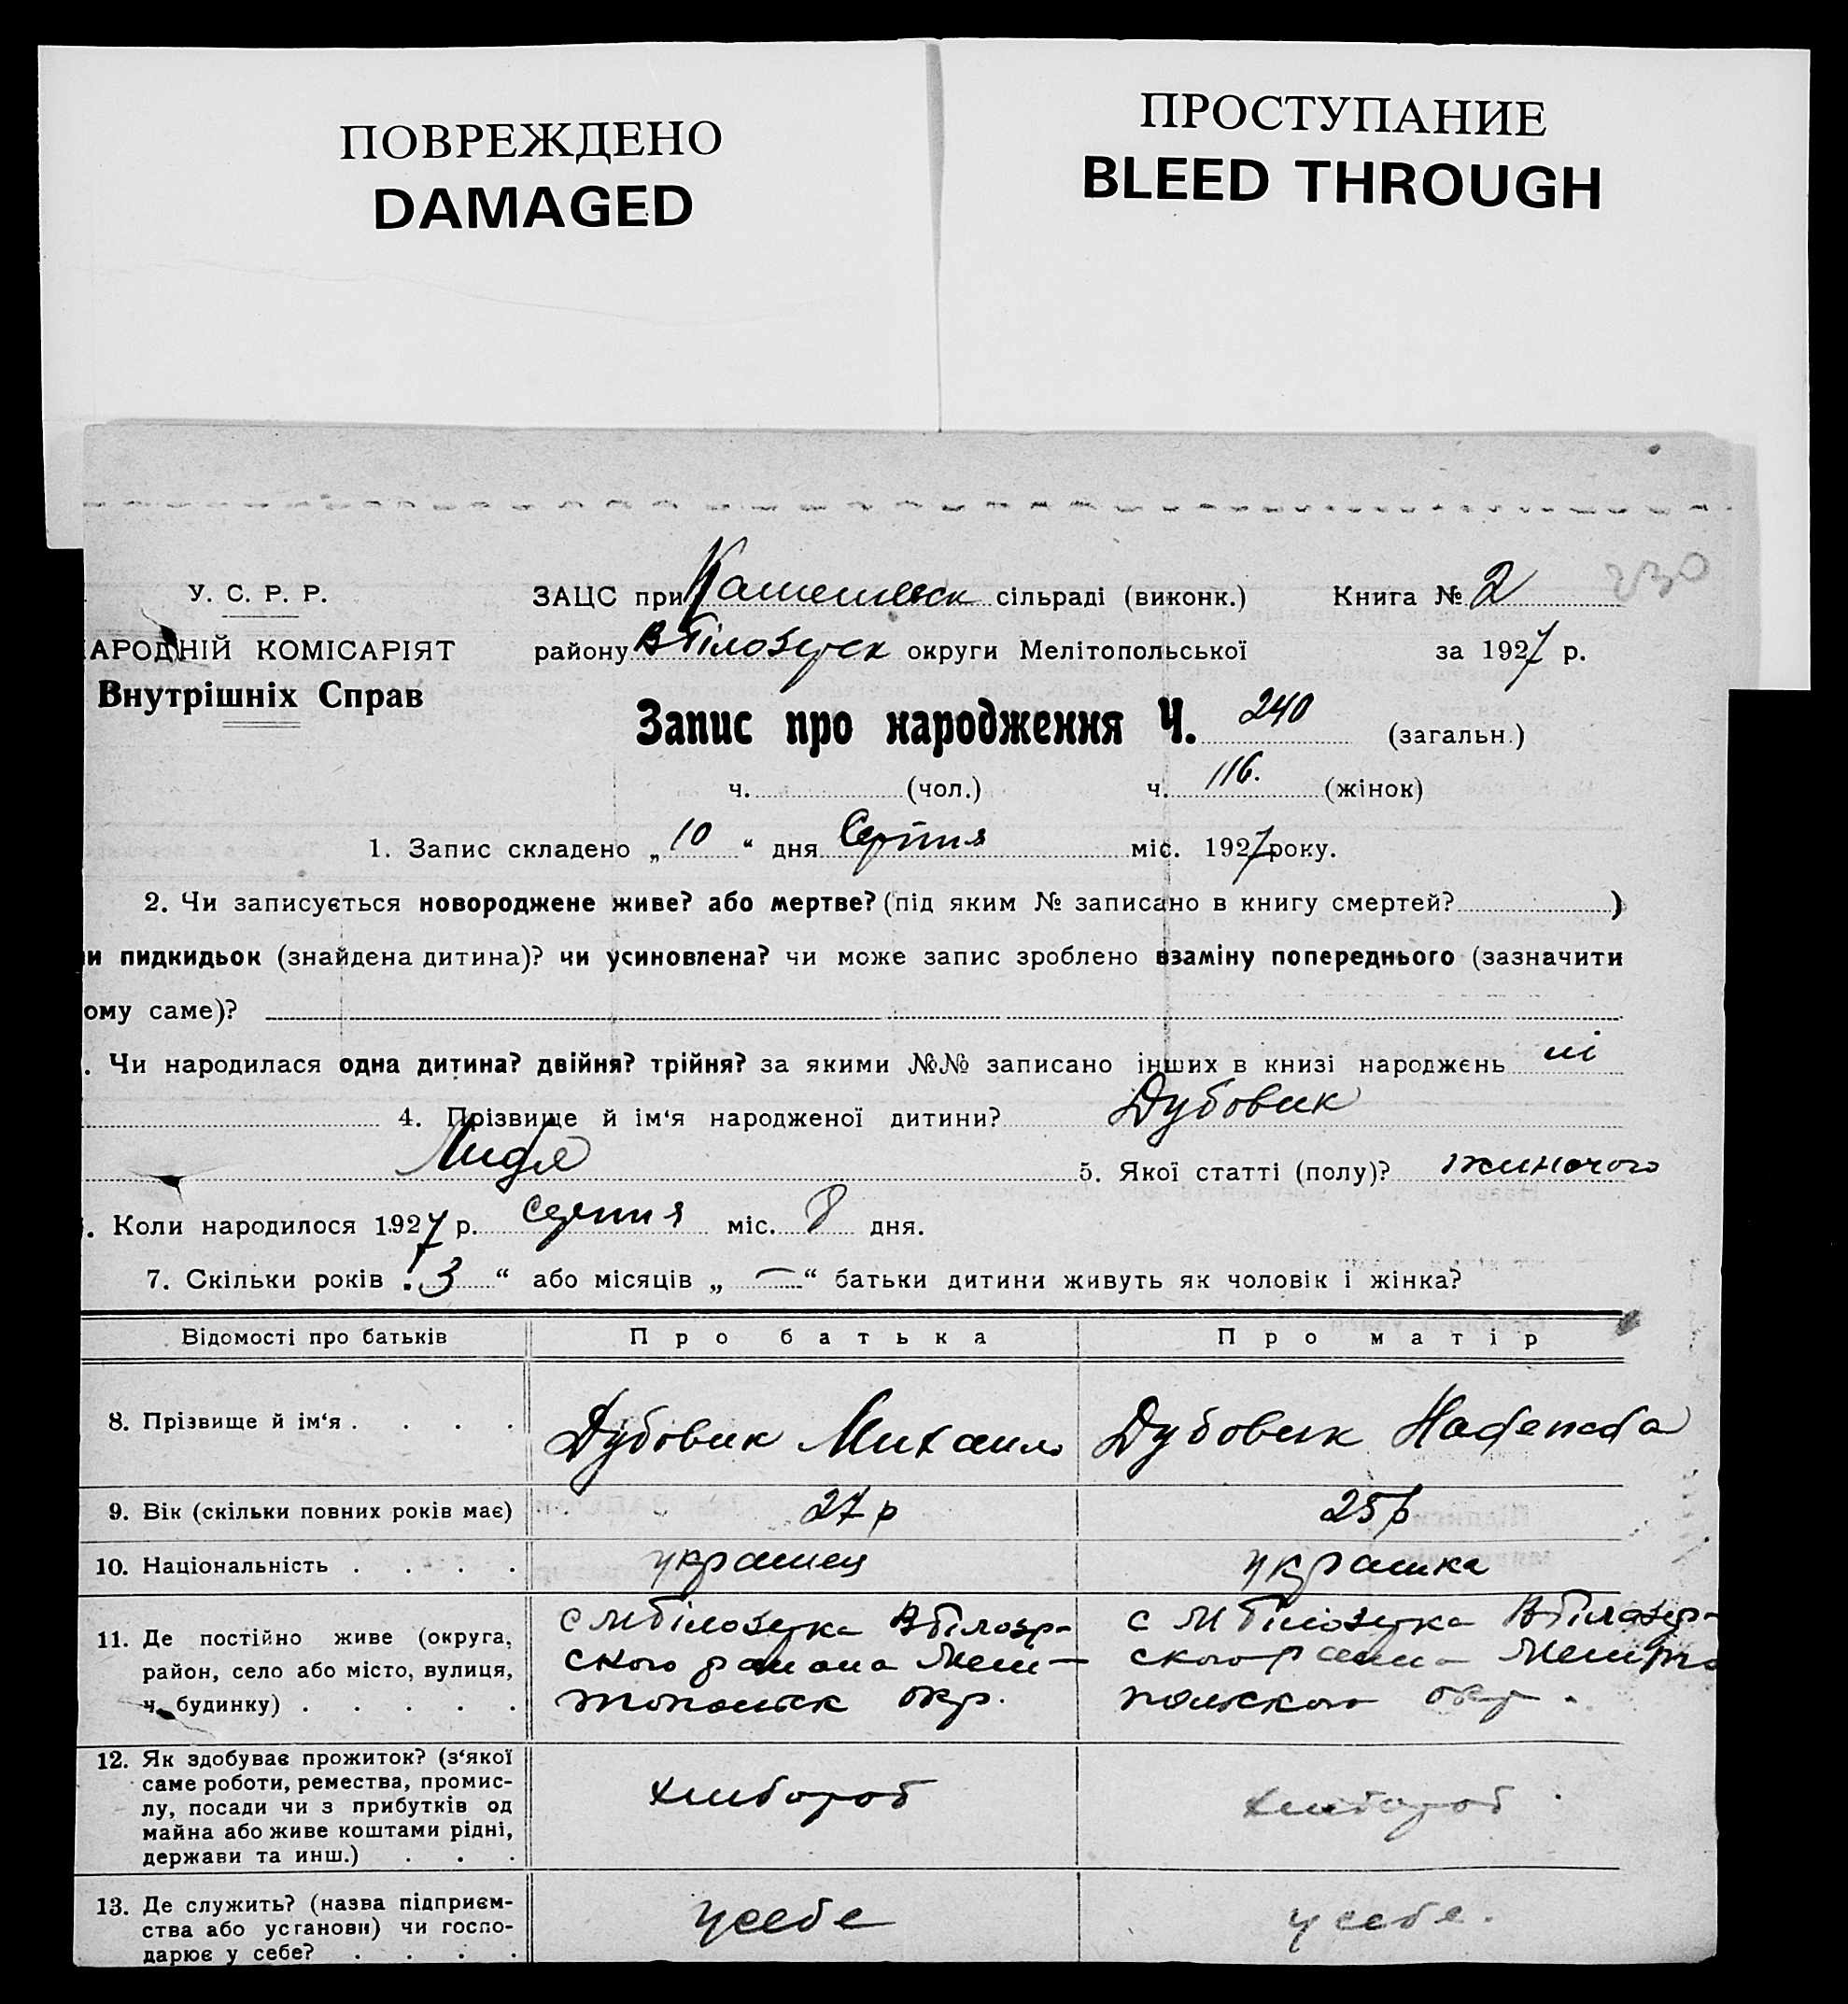 ПОВРЕЖДЕНО
DAMAGED
ПРОСТУПАНИЕ
BLEED THROUGH
230
У. С. Р. Р.
АРОДНІЙ КОМІСАРІЯТ
Внутрішніх Справ
ЗАЦС при сільраді (виконк.) Книга № 2
району В Білозерск округи Мелітопольської за 1927 р.
Запис про народження Ч. 240 (загальн.)
ч. (чол.) ч. 116. (жінок)
1. Запис складено „ 10 “ дня Серпня міс. 1927 року.
2. Чи записується новороджене живе? або мертве? (під яким № записано в книгу смертей? )
и пидкидьок (знайдена дитина)? чи усиновлена? чи може запис зроблено взаміну попереднього (зазначити
ому саме)?
. Чи народилася одна дитина? двійня? трійня? за якими №№ записано інших в книзі народжень ні
4. Прізвище й ім‘я народженої дитини? Дубовик
Лидя 5. Якої статті (полу)? жиночого
. Коли народилося 1927 р. серпня міс. 8 дня.
7. Скільки років „ 3 “ або місяців „ — “ батьки дитини живуть як чоловік і жінка?
Відомості про батьків Про батька Про матір
8. Прізвище й ім‘я . . . . Дубовик Михаило Дубовик Надежда
9. Вік (скільки повних років має) 27 р 25 р
10. Національність . . . . украинец украинка
11. Де постійно живе (округа, с М Білозерка В Білозер- с М Білозерка В Білозер-
район, село або місто, вулиця, ского раиона Мели- ского раина Мелито
ч. будинку) . . . . . топольск окр. польского окр.
12. Як здобуває прожиток? (з‘якої
саме роботи, ремества, промис-
лу, посади чи з прибутків од хлибороб хлибороб
майна або живе коштами рідні,
держави та инш.) . . .
13. Де служить? (назва підприєм-
ства або установи) чи госпо- у себе у себе.
дарює у себе? . . . .